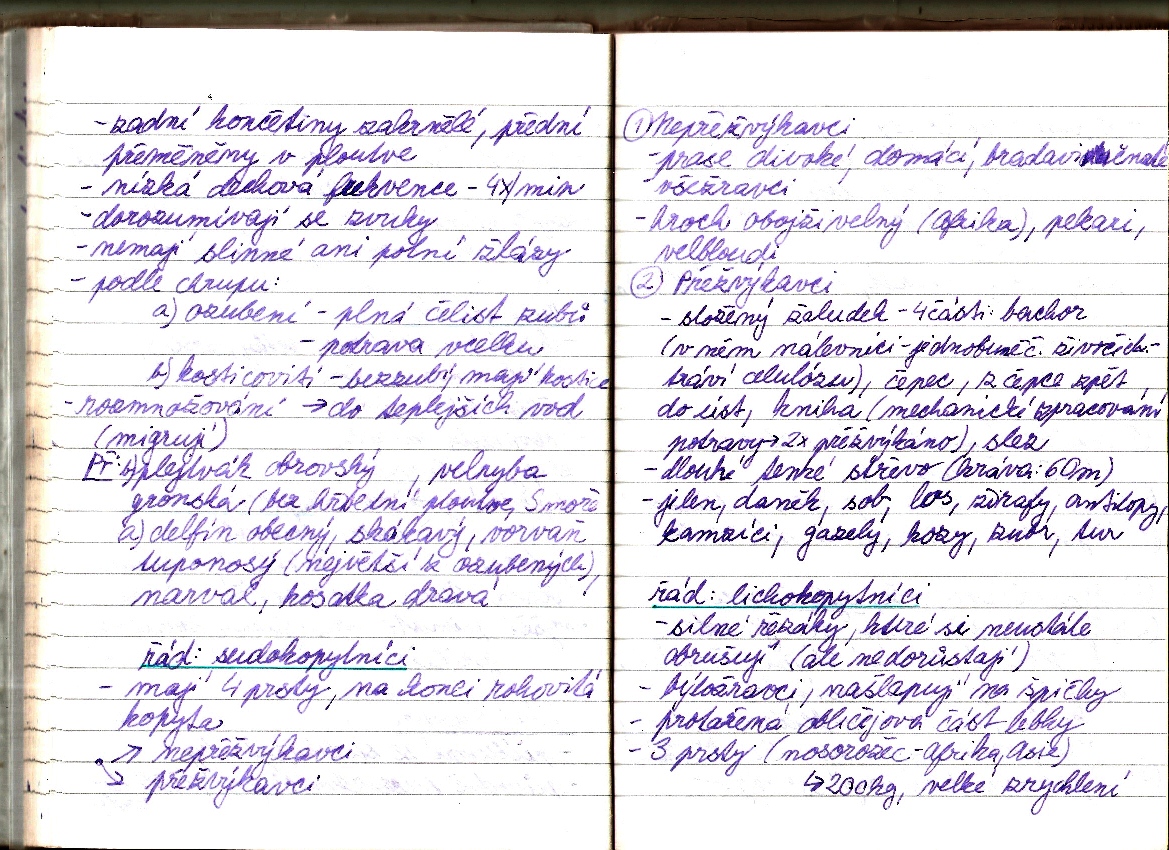 - zadní končetiny zakrnělé, přední
přeměněny v ploutve
- nízká dechová frekvence - 4x/min
- dorozumívají se zvuky
- nemají slinné ani potní žlázy
- podle chrupu:
a) ozubení - plná čelist zubů
- potrava vcelku
b) kosticovití - bezzubí, mají kostice
- rozmnožování → do teplejších vod
(migrují)
Př: b) plejtvák obrovský, velryba
grónská (bez hřbetní ploutve, S moře
a) delfín obecný, skákavý, vorvaň
tuponosý (největší z ozubených),
narval, kosatka dravá
řád: sudokopytníci
- mají 4 prsty, na konci rohovitá
kopyta
→ nepřežvýkavci
→ přežvýkavci
① Nepřežvýkavci
- prase divoké, domácí, bradavičnaté
- všežravci
- hroch obojživelný (Afrika), pekari,
velbloudi
② Přežvýkavci
- složený žaludek - 4 části: bachor
(v něm nálevníci - jednobuněč. živočich. -
tráví celulózu), čepec, z čepce zpět
do úst, kniha (mechanické zpracování
potravy → 2x přežvýkáno), slez
- dlouhé tenké střevo (kráva: 60m)
- jelen, daněk, sob, los, žirafy, antilopy,
kamzíci, gazely, kozy, zubr, tur
řád: lichokopytníci
- silné řezáky, které si neustále
obrušují (ale nedorůstají)
- býložravci, našlapují na špičky
- protažená obličejová část lebky
- 3 prsty (nosorožec - Afrika, Asie)
↳ 20 kg, velké zrychlení